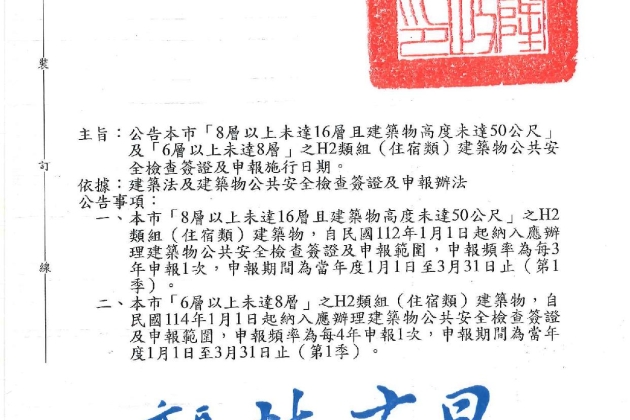 裝
訂
線
主旨：公告本市「8層以上未達16層且建築物高度未達50公尺」
及「6層以上未達8層」之H2類組（住宿類）建築物公共安
全檢查簽證及申報施行日期。
依據：建築法及建築物公共安全檢查簽證及申報辦法
公告事項：
一、本市「8層以上未達16層且建築物高度未達50公尺」之H2
類組（住宿類）建築物，自民國112年1月1日起納入應辦
理建築物公共安全檢查簽證及申報範圍，申報頻率為每3
年申報1次，申報期間為當年度1月1日至3月31日止（第1
季）。
二、本市「6層以上未達8層」之H2類組（住宿類）建築物，自
民國114年1月1日起納入應辦理建築物公共安全檢查簽證
及申報範圍，申報頻率為每4年申報1次，申報期間為當年
度1月1日至3月31日止（第1季）。